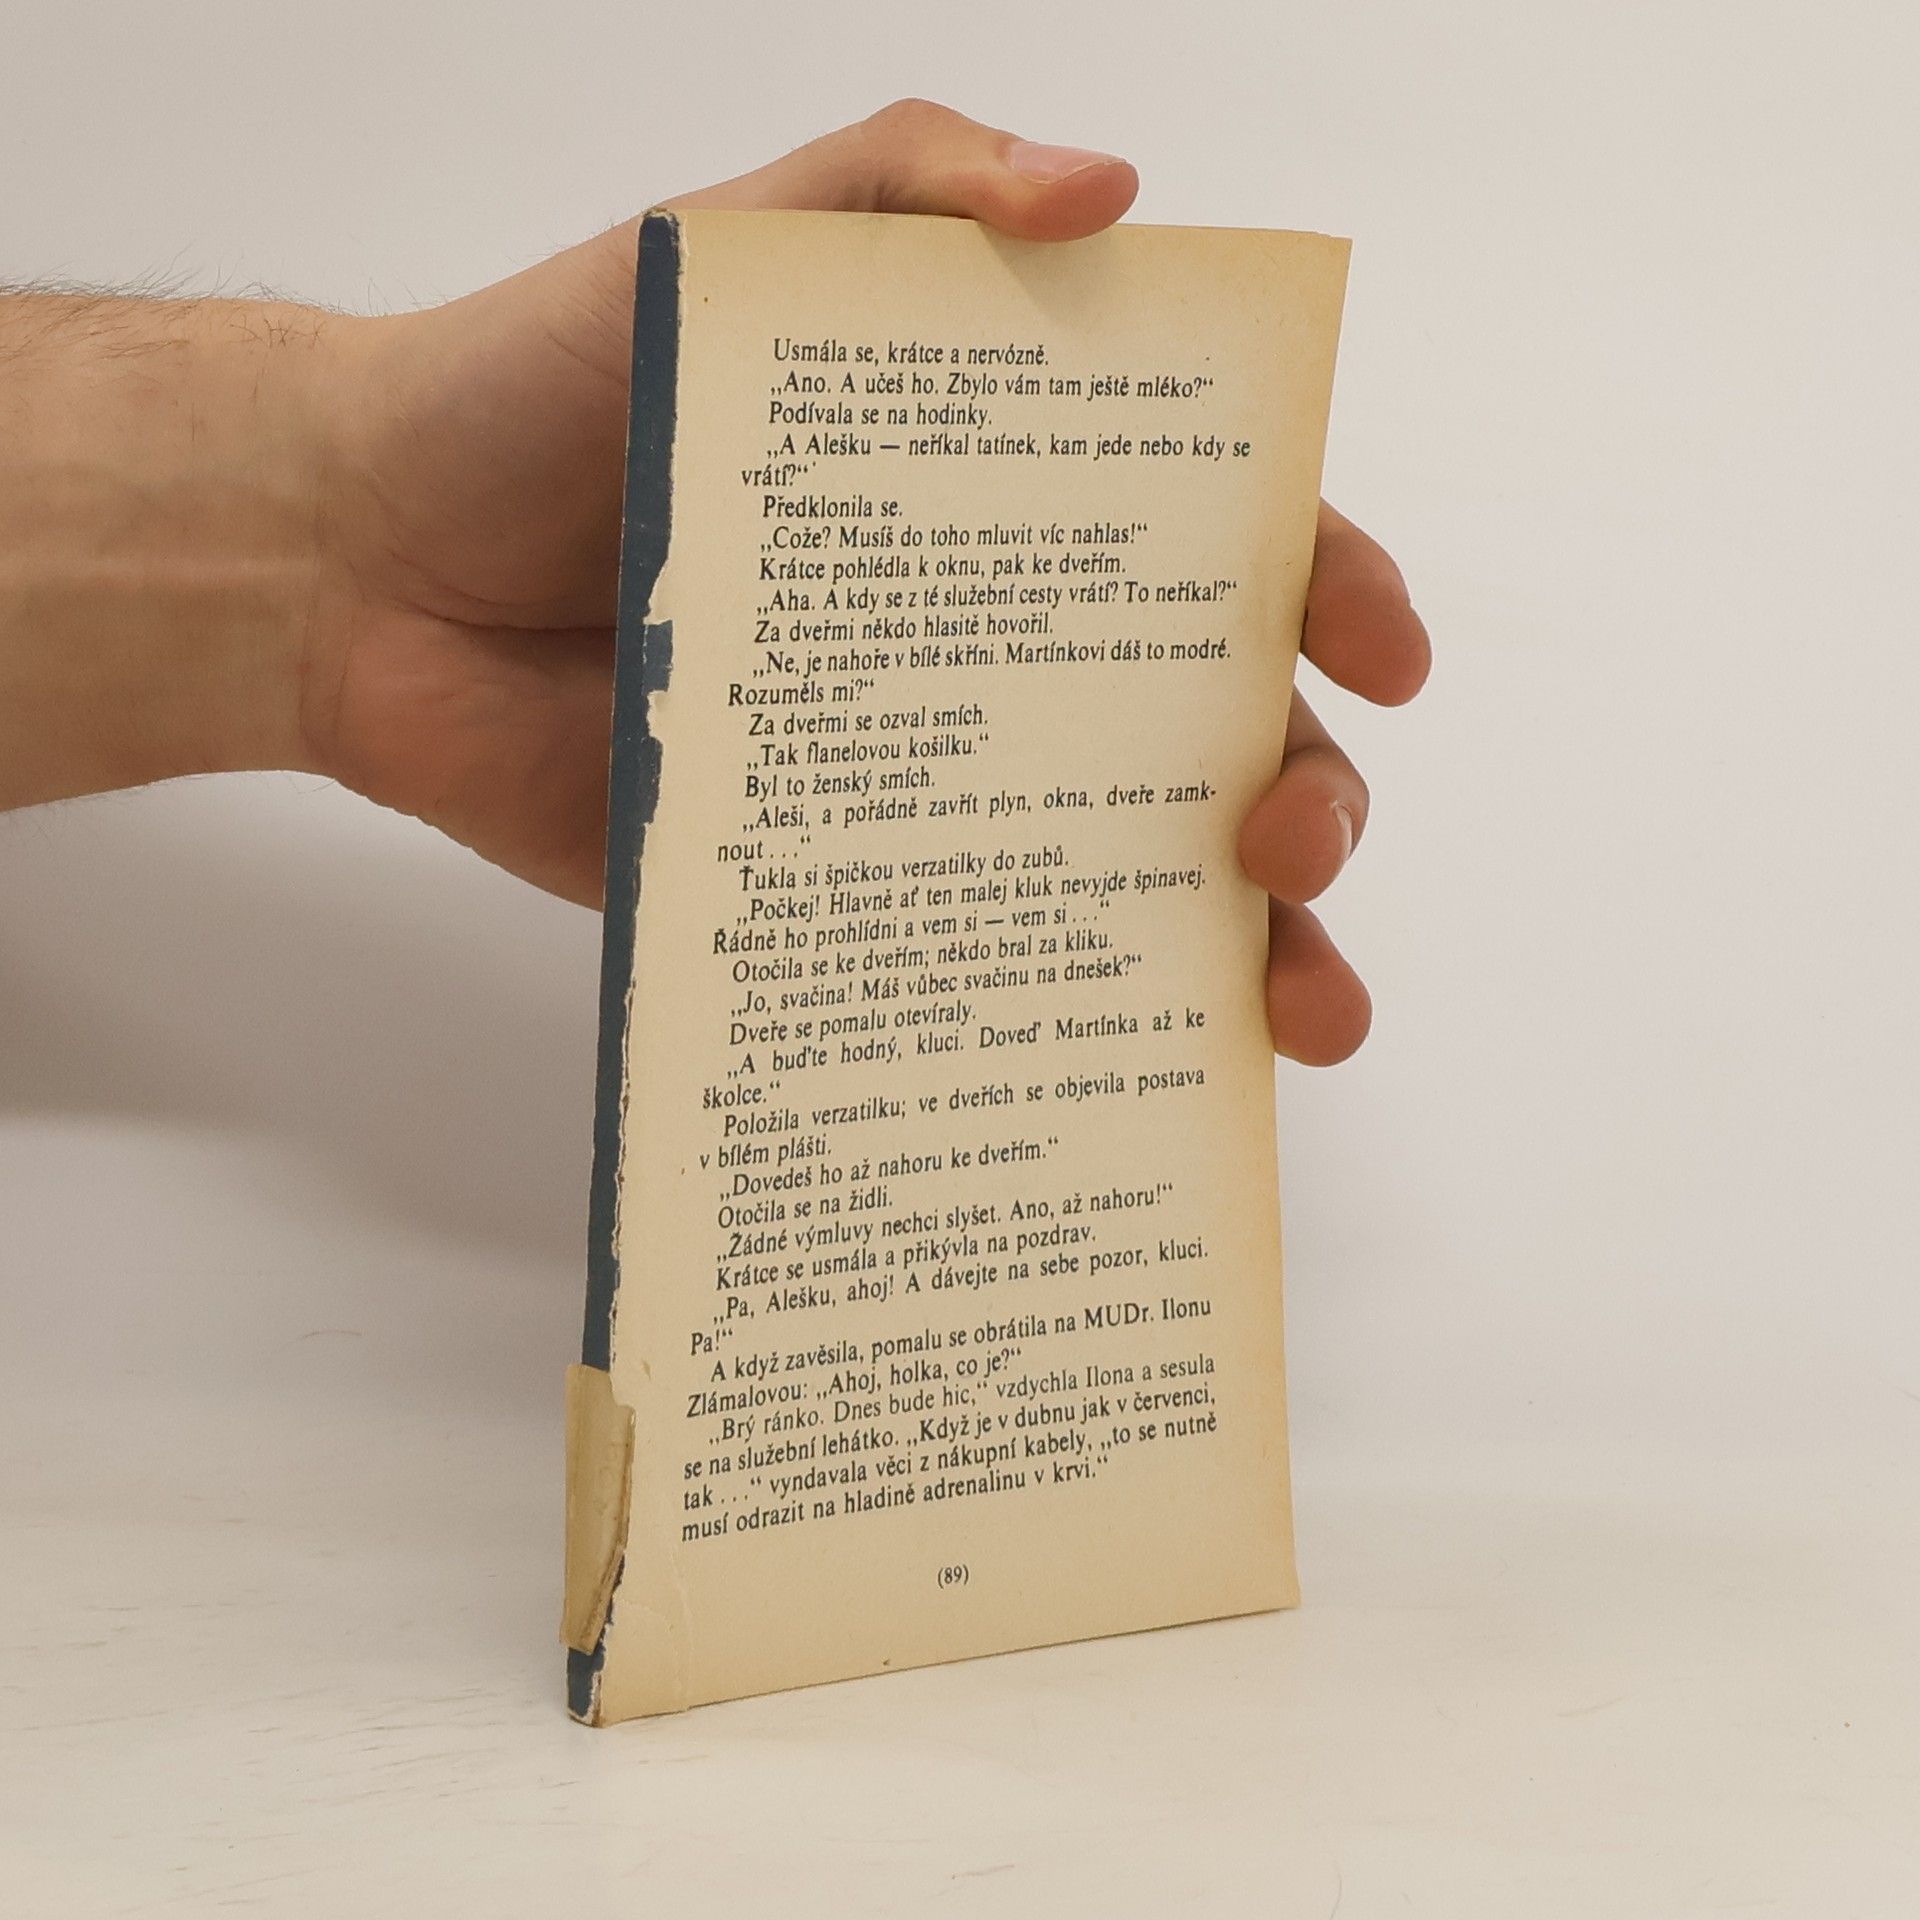 Usmála se, krátce a nervózně.
„Ano. A učeš ho. Zbylo vám tam ještě mléko?“
Podívala se na hodinky.
„A Alešku — neříkal tatínek, kam jede nebo kdy se
vrátí?“
Předklonila se.
„Cože? Musíš do toho mluvit víc nahlas!“
Krátce pohlédla k oknu, pak ke dveřím.
„Aha. A kdy se z té služební cesty vrátí? To neříkal?“
Za dveřmi někdo hlasitě hovořil.
„Ne, je nahoře v bílé skříni. Martínkovi dáš to modré.
Rozuměls mi?“
Za dveřmi se ozval smích.
„Tak flanelovou košilku.“
Byl to ženský smích.
„Aleši, a pořádně zavřít plyn, okna, dveře zamk-
nout . . .“
Ťukla si špičkou verzatilky do zubů.
„Počkej! Hlavně ať ten malej kluk nevyjde špinavej.
Řádně ho prohlídni a vem si — vem si . . .“
Otočila se ke dveřím; někdo bral za kliku.
„Jo, svačina! Máš vůbec svačinu na dnešek?“
Dveře se pomalu otevíraly.
„A buďte hodný, kluci. Doveď Martínka až ke
školce.“
Položila verzatilku; ve dveřích se objevila postava
v bílém plášti.
„Dovedeš ho až nahoru ke dveřím.“
Otočila se na židli.
„Žádné výmluvy nechci slyšet. Ano, až nahoru!“
Krátce se usmála a přikývla na pozdrav.
„Pa, Alešku, ahoj! A dávejte na sebe pozor, kluci.
Pa!“
A když zavěsila, pomalu se obrátila na MUDr. Ilonu
Zlámalovou: „Ahoj, holka, co je?“
„Brý ránko. Dnes bude hic,“ vzdychla Ilona a sesula
se na služební lehátko. „Když je v dubnu jak v červenci,
tak . . .“ vyndavala věci z nákupní kabely, „to se nutně
musí odrazit na hladině adrenalinu v krvi.“
(89)